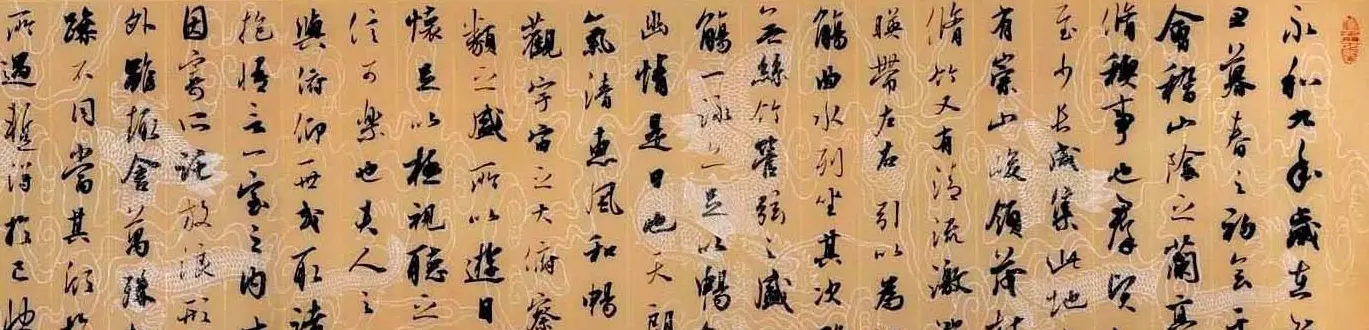 永和九年歲在
丑暮春之初會于
會稽山陰之蘭亭
脩稧事也羣賢
至少長咸集此地
有崇山峻領茂
脩竹又有清流激
暎帶左右引以為
觴曲水列坐其次
無絲竹管弦之盛
觴一詠亦足以暢
幽情是日也天朗
氣清惠風和暢
觀宇宙之大俯察
類之盛所以遊目
懷足以極視聽之
信可樂也夫人之
與俯仰一世或取諸
抱悟言一室之內
因寄所託放浪形
外雖趣舍萬殊
躁不同當其欣於
所遇蹔得於己